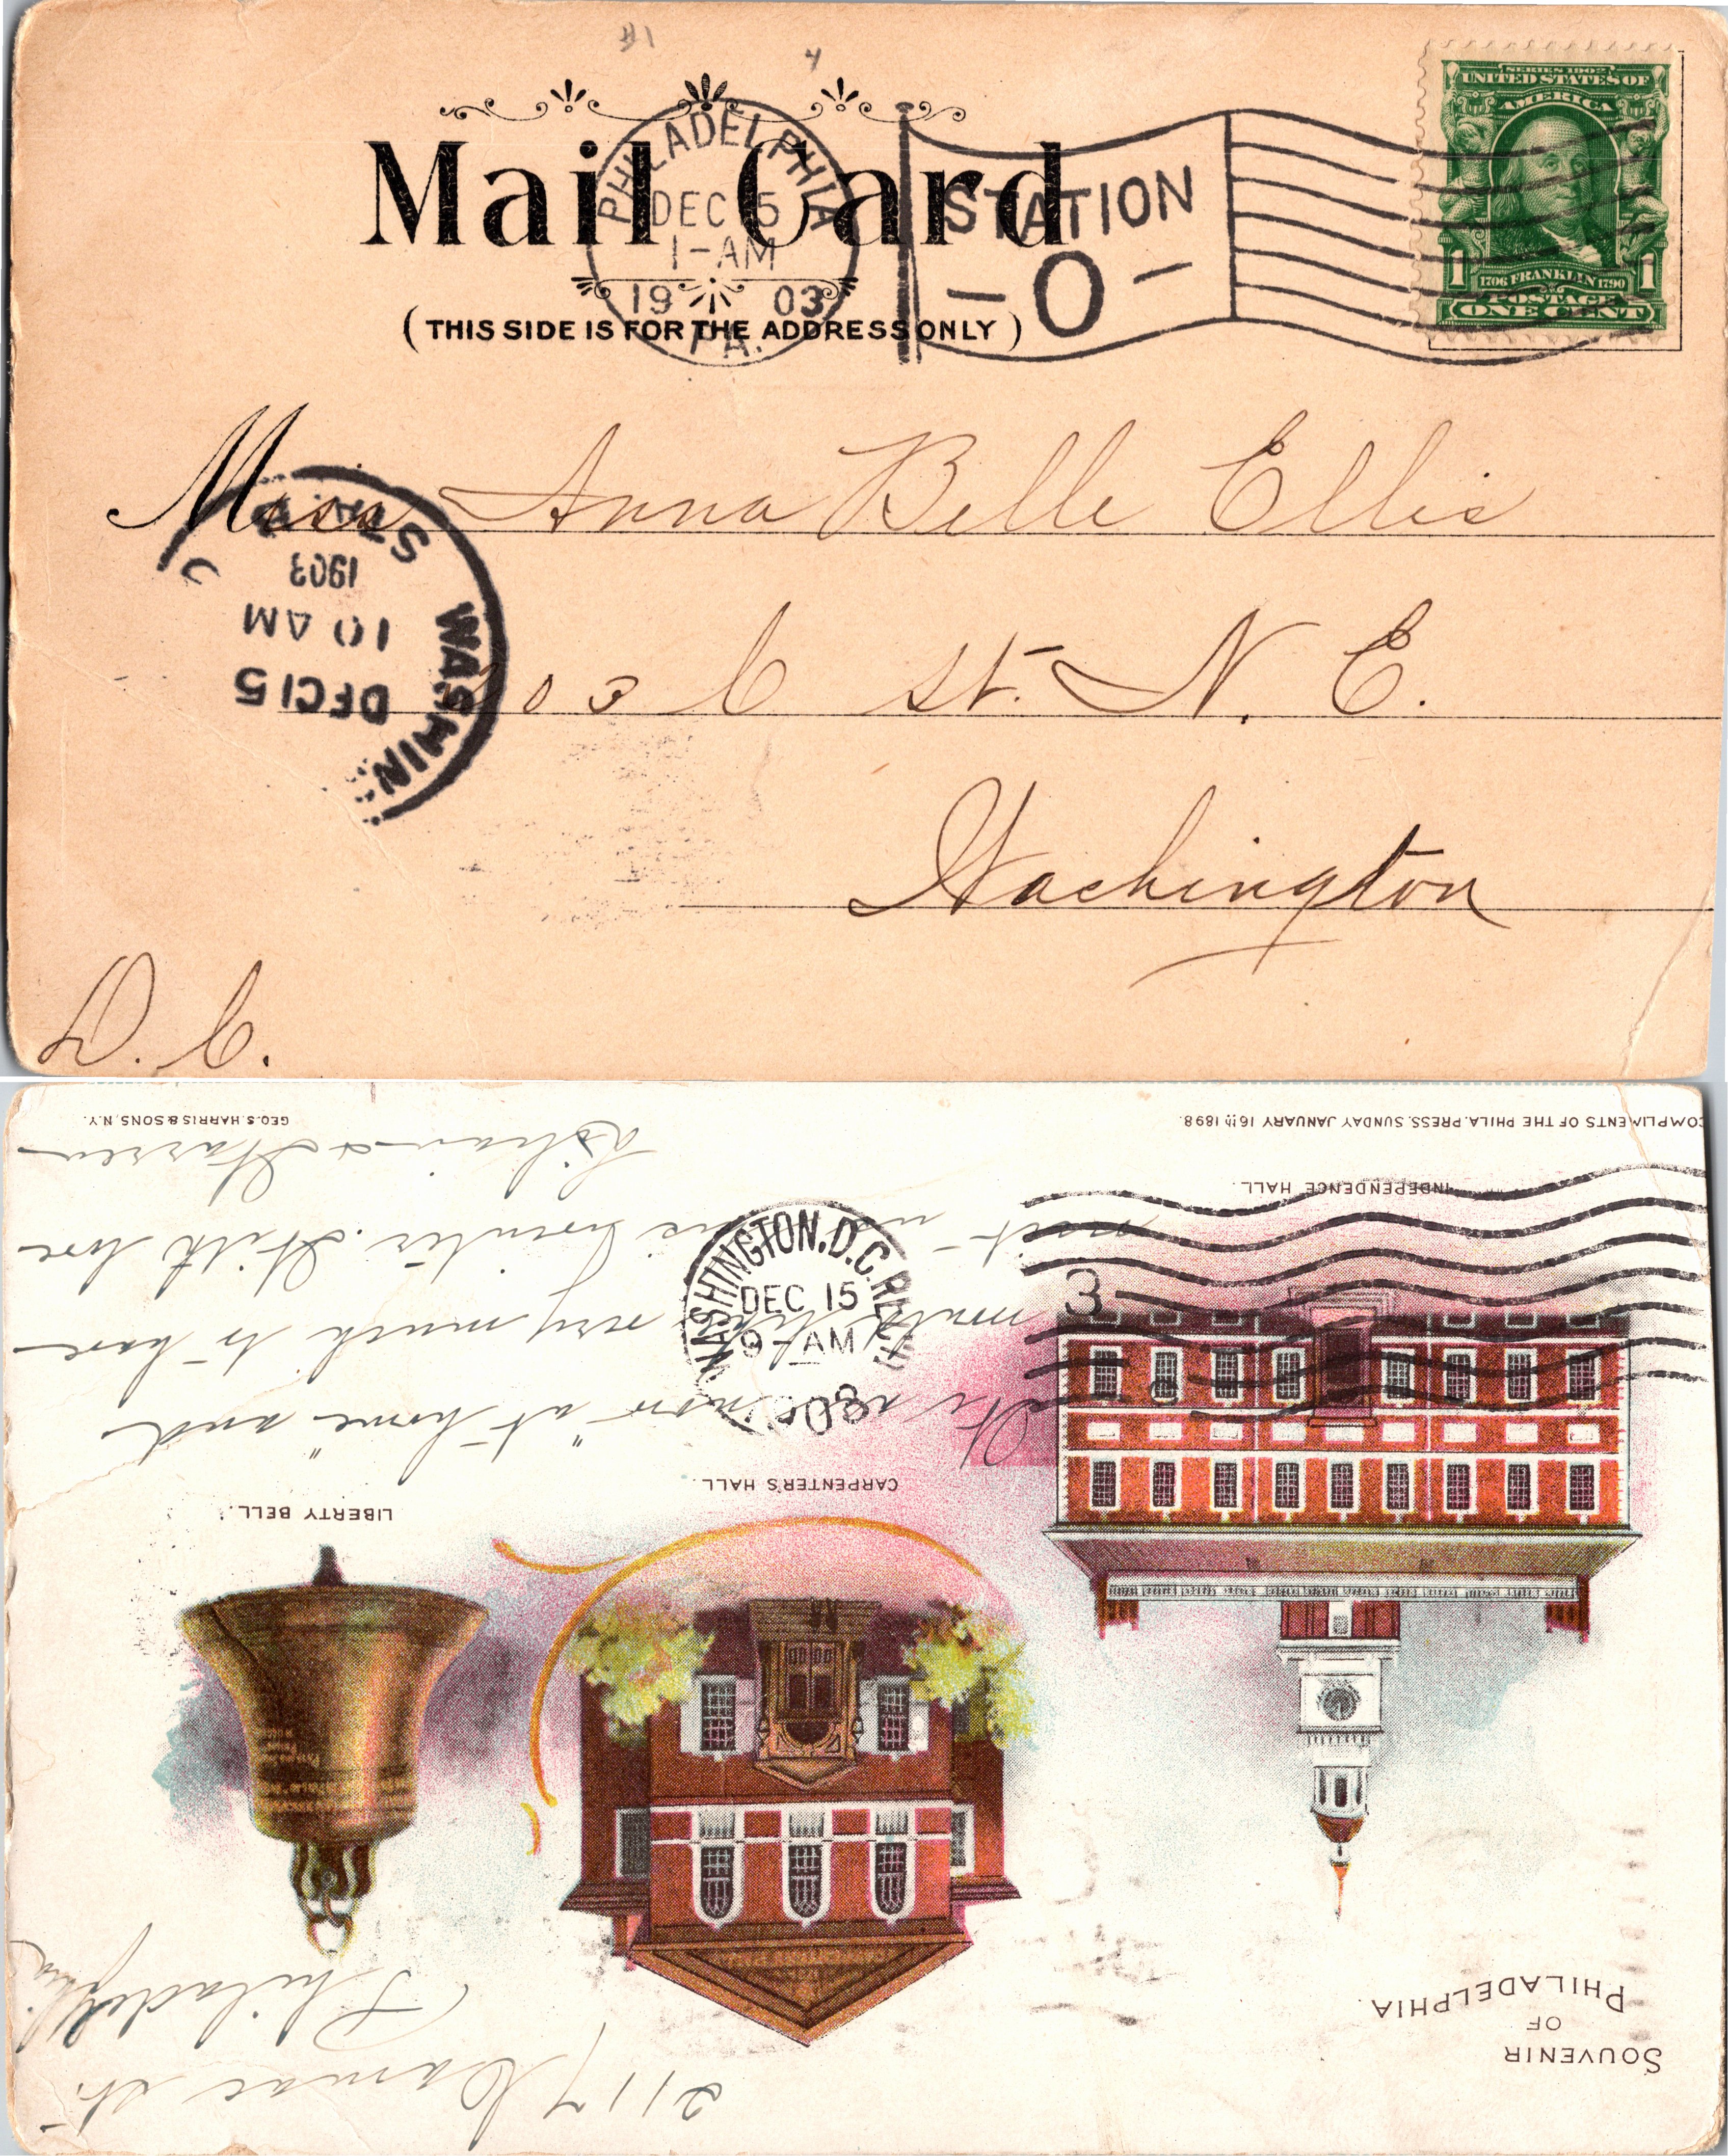 Mail Card
(THIS SIDE IS FOR THE ADDRESS ONLY)
PHILADELPHIA
DEC 15
1-AM
1903
PA.
STATION
- O -
SERIES 1902
UNITED STATES OF
AMERICA
1706 FRANKLIN 1790
1 1
POSTAGE
ONE CENT
Miss Anna Belle Ellis
03 C St. N. E.
Washington
D. C.
STA.
1903
10 AM
DEC 15
WASHIN
2117 Camac St.
Philadelphia
SOUVENIR
OF
PHILADELPHIA.
LIBERTY BELL.
CARPENTER'S HALL.
INDEPENDENCE HALL.
We are now "at home" and
would like very much to have
visit us winter. With love
Lilian & Warren
WASHINGTON, D.C. REC'D
DEC 15
9-AM
3
COMPLIMENTS OF THE PHILA. PRESS. SUNDAY JANUARY 16th 1898.
GEO. S. HARRIS & SONS, N.Y.